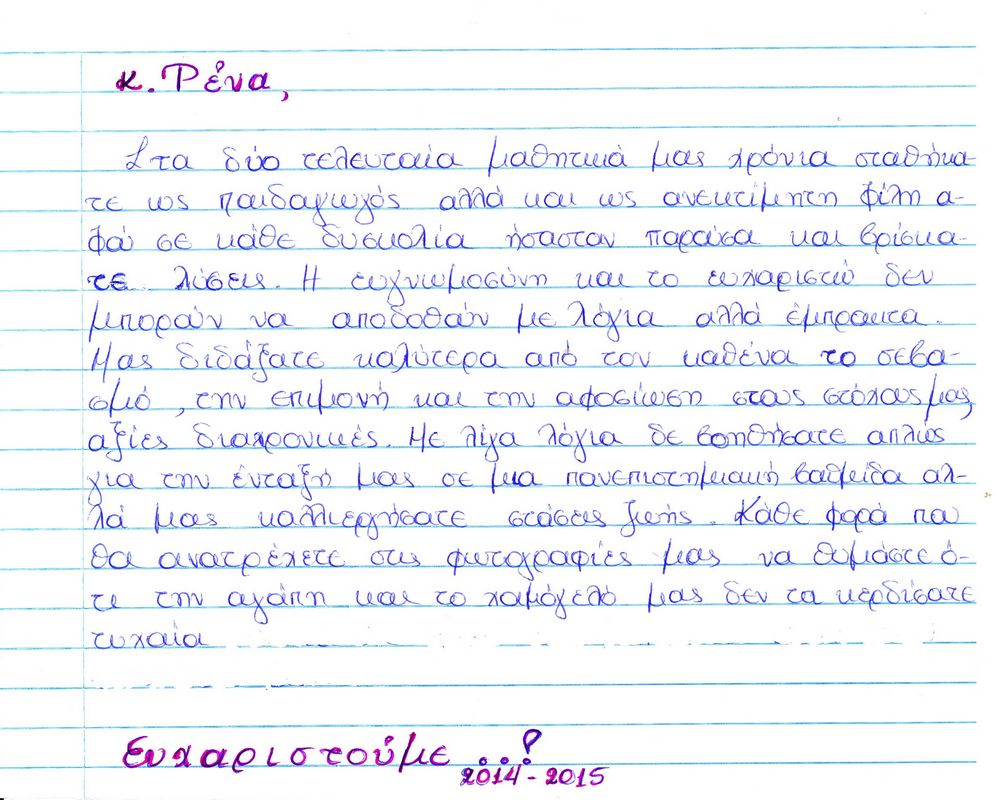 κ. Ρένα,
Στα δύο τελευταία μαθητικά μας χρόνια σταθήκα-
τε ως παιδαγωγός αλλά και ως ανεκτίμητη φίλη α-
φού σε κάθε δυσκολία ήσασταν παρούσα και βρίσκα-
τε λύσεις. Η ευγνωμοσύνη και το ευχαριστώ δεν
μπορούν να αποδοθούν με λόγια αλλά έμπρακτα.
Μας διδάξατε καλύτερα από τον καθένα το σεβα-
σμό, την επιμονή και την αφοσίωση στους στόχους μας,
αξίες διαχρονικές. Με λίγα λόγια δε βοηθήσατε απλώς
για την ένταξή μας σε μια πανεπιστημιακή βαθμίδα αλ-
λά μας καλλιεργήσατε στάσεις ζωής. Κάθε φορά που
θα ανατρέχετε στις φωτογραφίες μας να θυμάστε ό-
τι την αγάπη και το χαμόγελό μας δεν τα κερδίσατε
τυχαία
Ευχαριστούμε...!
2014-2015